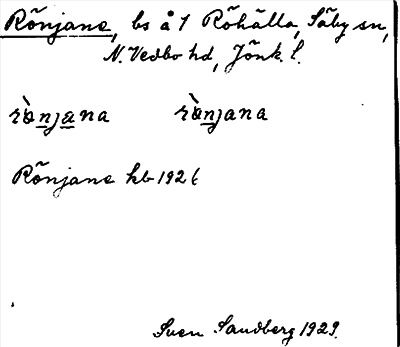 Rönjane, bs å 1 Röhälla, Säby sn,
N. Vedbo hd, Jönk. l.
rὰnjana rὰnjana
Rönjane hb 1926
Sven Sandberg 1929.